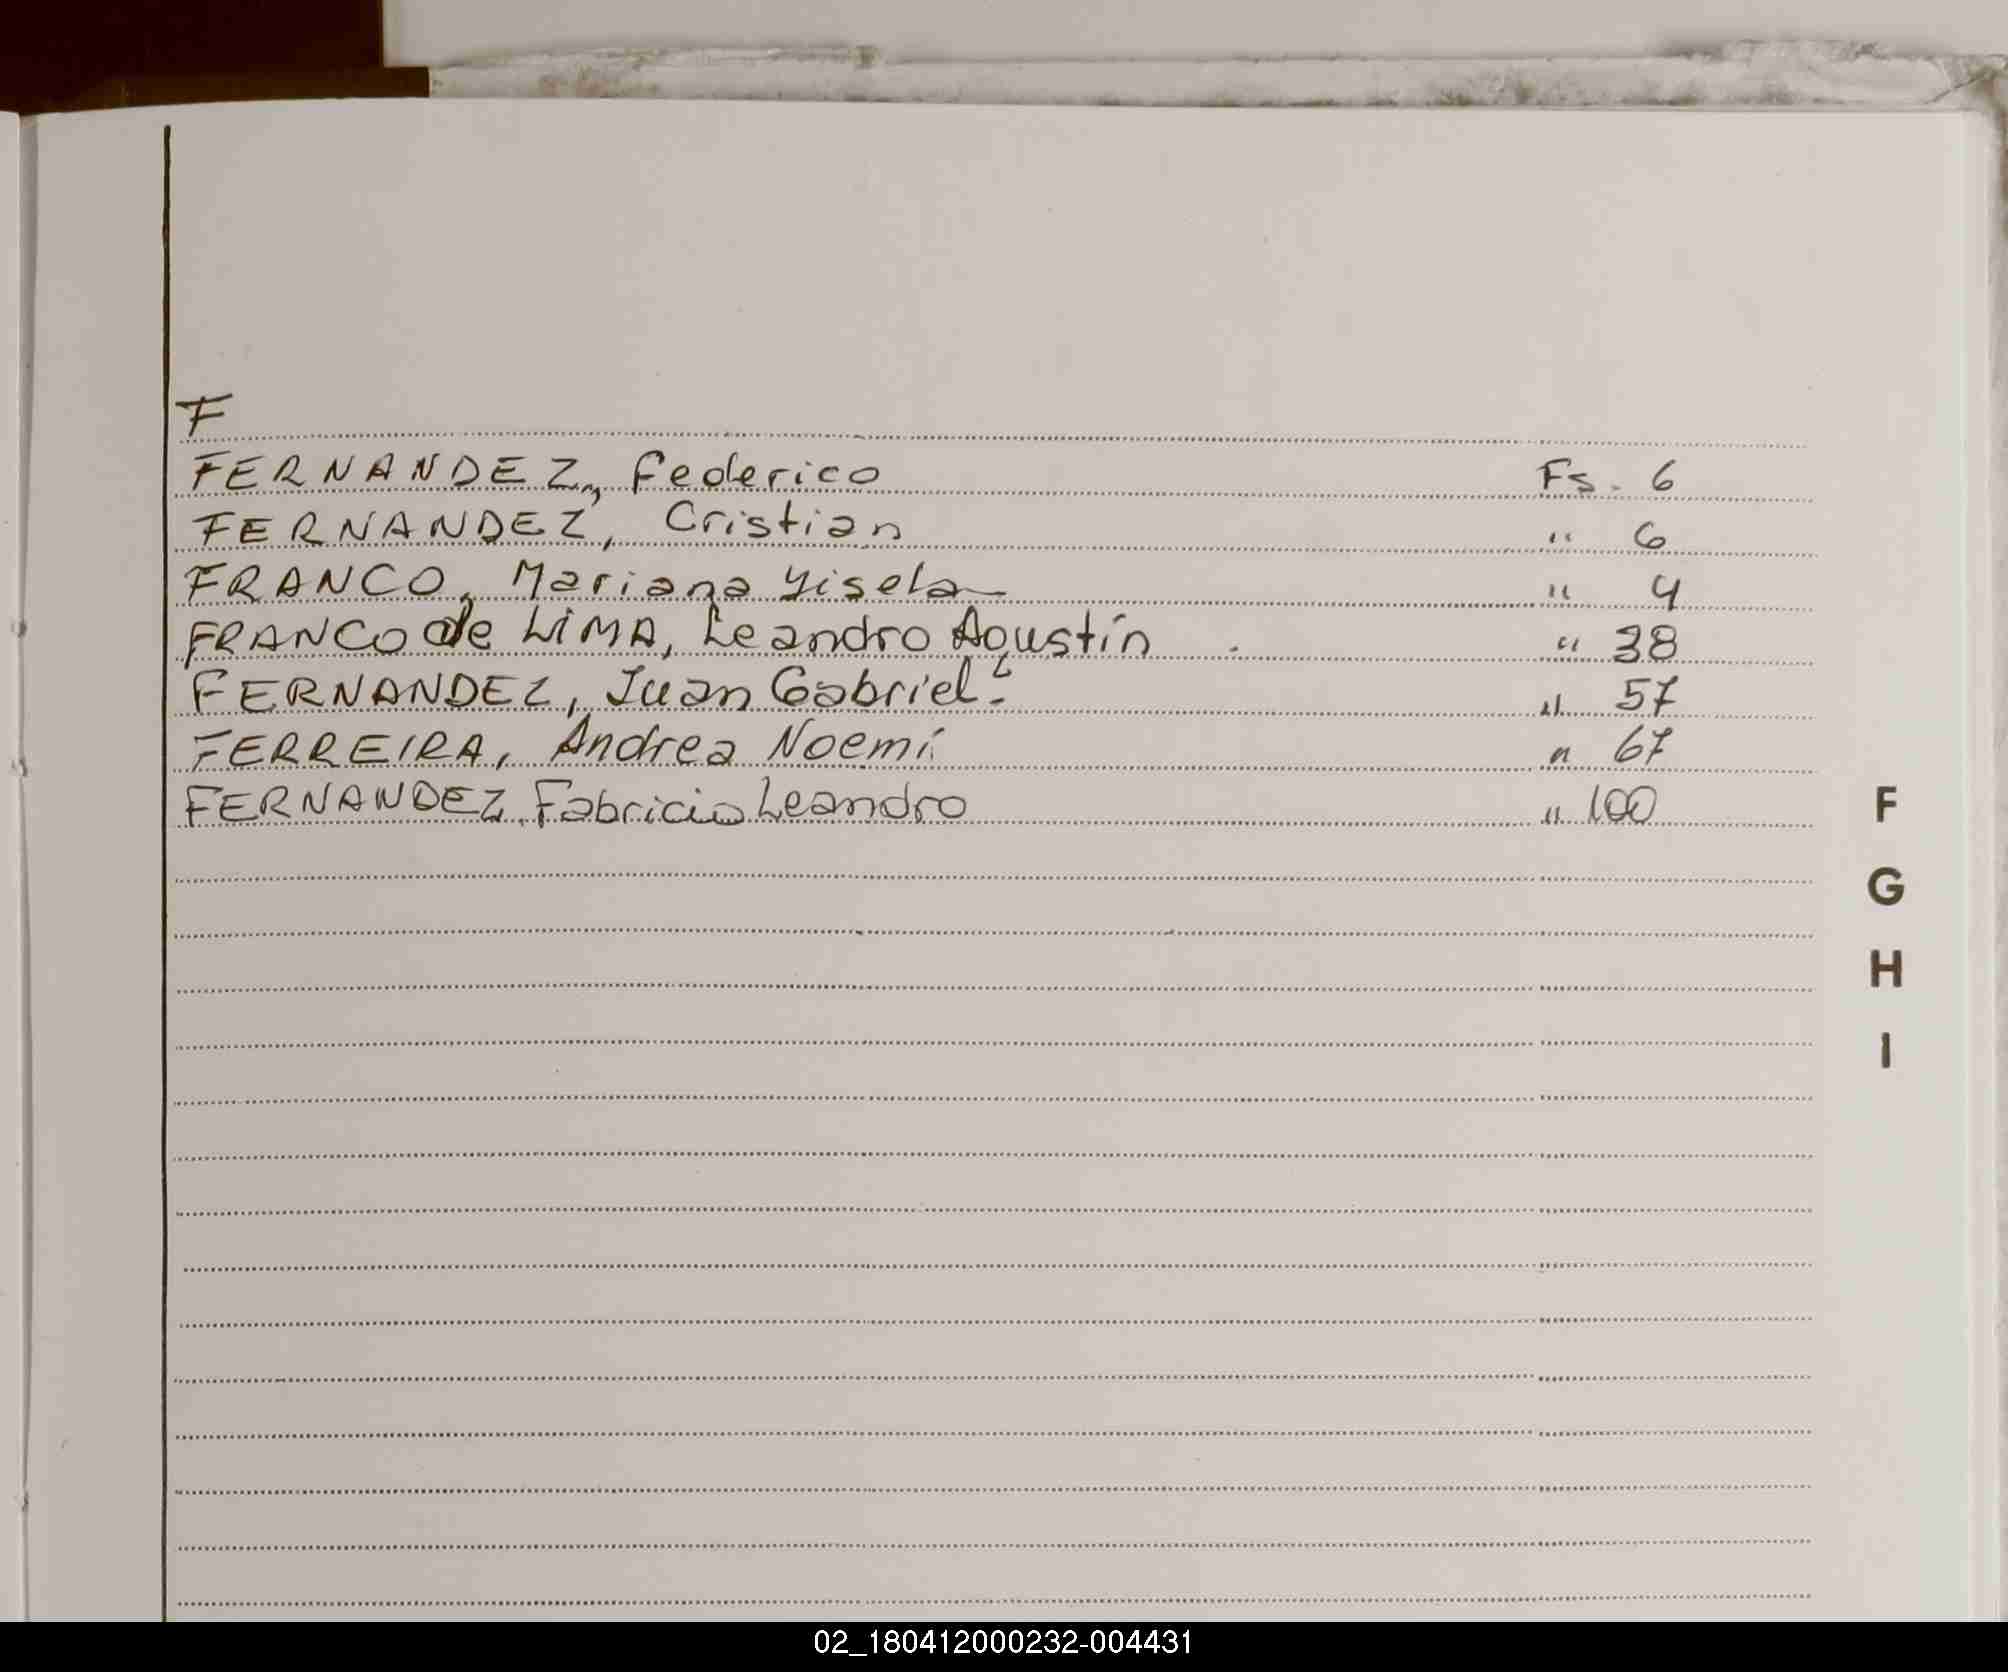 F
FERNANDEZ, Federico Fs. 6
FERNANDEZ, Cristian " 6
FRANCO, Mariana Yisela " 4
FRANCO de LIMA, Leandro Agustín " 38
FERNANDEZ, Juan Gabriel.- " 57
FERREIRA, Andrea Noemí " 67
FERNANDEZ, Fabricio Leandro " 100
F
G
H
I
02_180412000232-004431